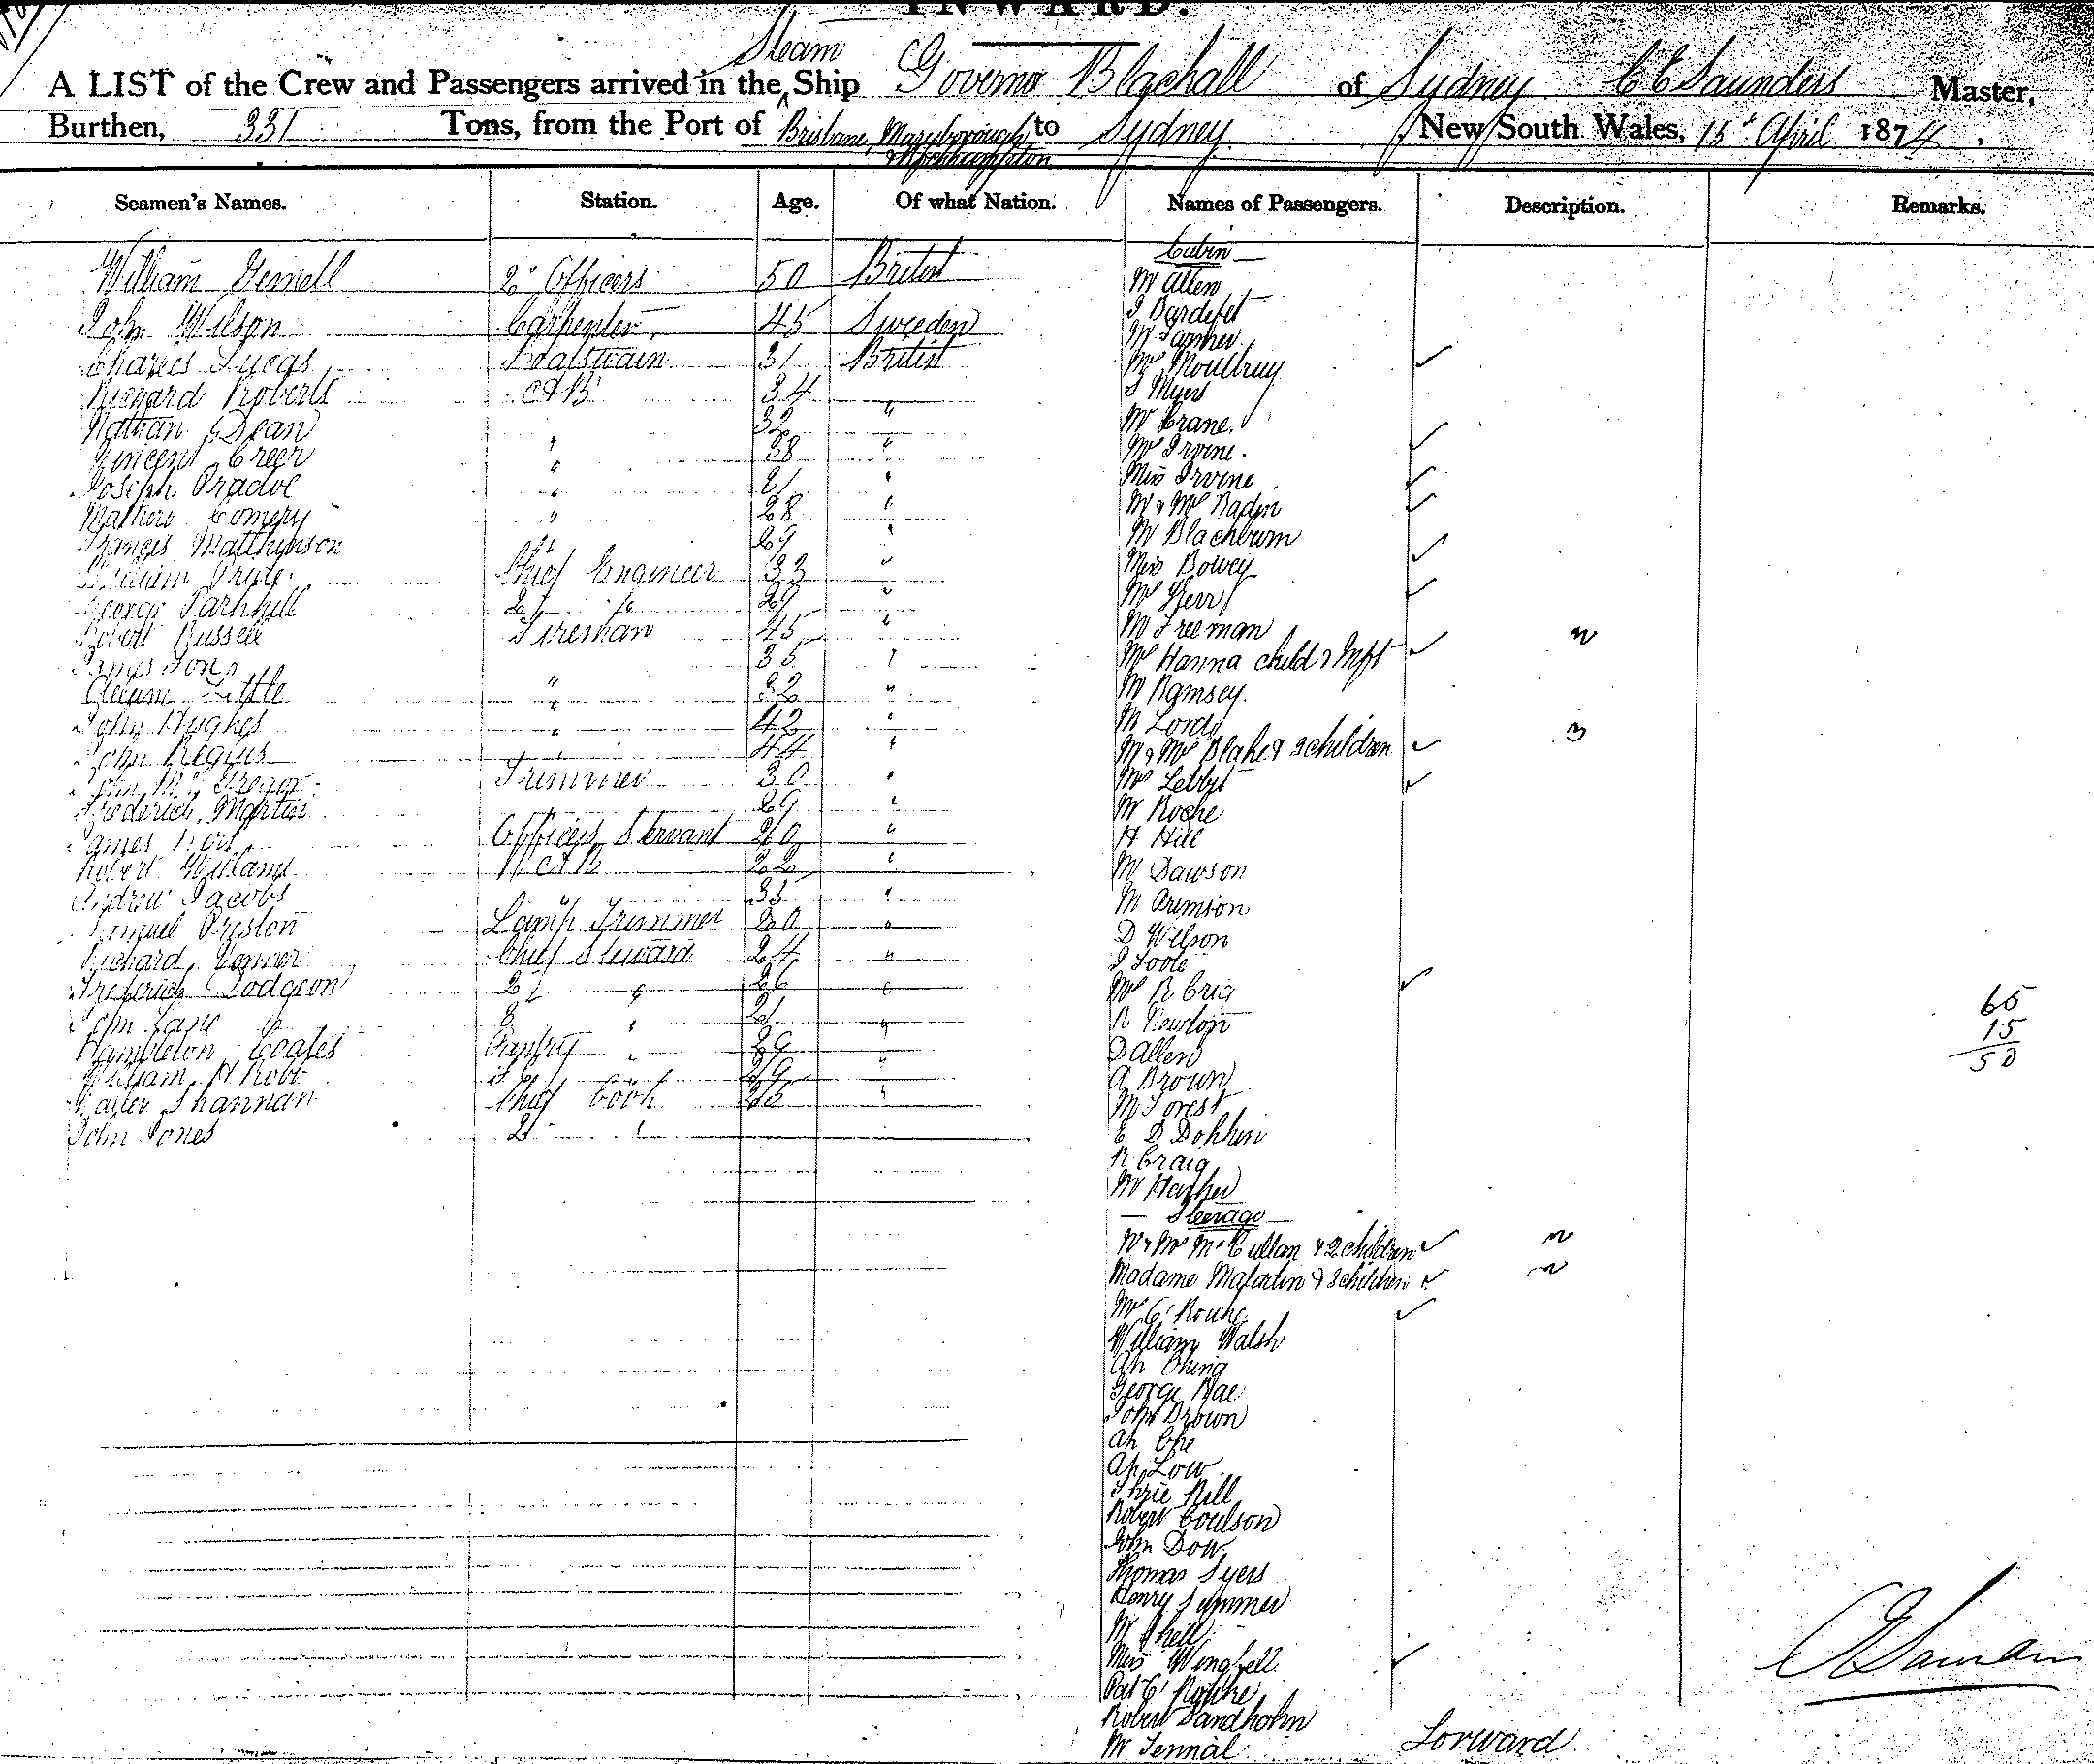 INWARD.
Steam
A LIST of the Crew and Passengers arrived in the Ship Governor Blackall of Sydney C C Saunders Master,
Burthen, 331 Tons, from the Port of Brisbane, Maryborough to Sydney New South Wales, 15t April 1874.
& Rockhampton
Seamen's Names. Station. Age. Of what Nation. Names of Passengers. Description. Remarks.
William 2d Officers 50 British
John Wilson Carpenter 45 Sweden
Charles Lucas Boatswain 31 British
Richard Roberts AB 34
Nathan Dean 32 "
Vincent Creer " 38 "
Joseph " 21 "
Mathew " 28 "
Francis Matthewson " 29 "
William Chief Engineer 33 "
George Parkhill 2d " 29 "
Robert Russell Fireman 45 "
James 35 "
Little " 32 "
John Hughes " 42 "
John " 44 "
John McGregor Trimmer 30 "
Frederick Martin 29 "
James Officers Servant 20 "
Robert Williams AB 22 "
Andrew Jacobs " 35 "
Samuel Preston Lamp Trimmer 20 "
Richard Chief Steward 24 "
Frederick Dodgeon 2d " 26 "
John 3 " 21 "
Hambleton Coates Pantry " 29 "
William H Robb " 29 "
Shannan Chief Cook 25 "
John Jones 2d "
Cabin
Mr Allen
Mr
Mrs Moultray
S Myers
Mr Crane
Mrs Irvine.
Miss Irvine
Mr & Mrs
Mr Blackburn
Miss Bowey
Mrs Kerr
Mr Freeman
Mrs Hanna child & Inft
Mr Ramsey.
Mr Lord
Mr & Mrs Blake & 3 children 3
Mrs
Mr Roche
H Hill
Mr Dawson
Mr
D Wilson
Mrs R
R Newton
D Allen
A Brown
Mr Forest
E D
R Craig
Mr
65
15
50
Steerage
Mr & Mrs McCullan & 2 children
Madame & 3 children
Mrs O'Rourke
William Walsh
Ah Ching
George Rae
John Brown
Ah Che
Ah Low
Robert Coulson
John Dow
Thomas Syers
Henry Summer
Mr
Miss Wingfell
Pat O'Rourke
Robert Sandholm
Mr Tennal
Forward
C Saunders